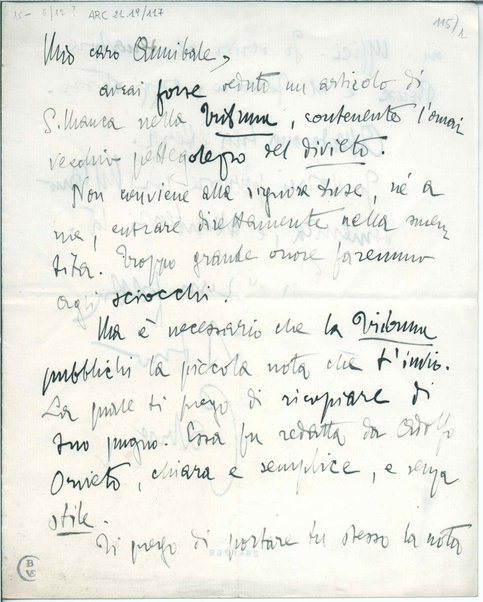 ARC 21.19/117
115/1
Mio caro Annibale,
avrai forse veduto un articolo di
S. Manca nella Tribuna, contenente l'omai
vecchio pettegolezzo del divieto.
Non conviene alla signora Duse, né a
me, entrare direttamente nella smen-
tita. Troppo grande onore faremmo
agli sciocchi.
Ma è necessario che la Tribuna
pubblichi la piccola nota che t'invio.
La quale ti prego di ricopiare di
tuo pugno. Essa fu redatta da Adolfo
Orvieto, chiara e semplice, e senza
stile.
Ti prego di portare tu stesso la nota